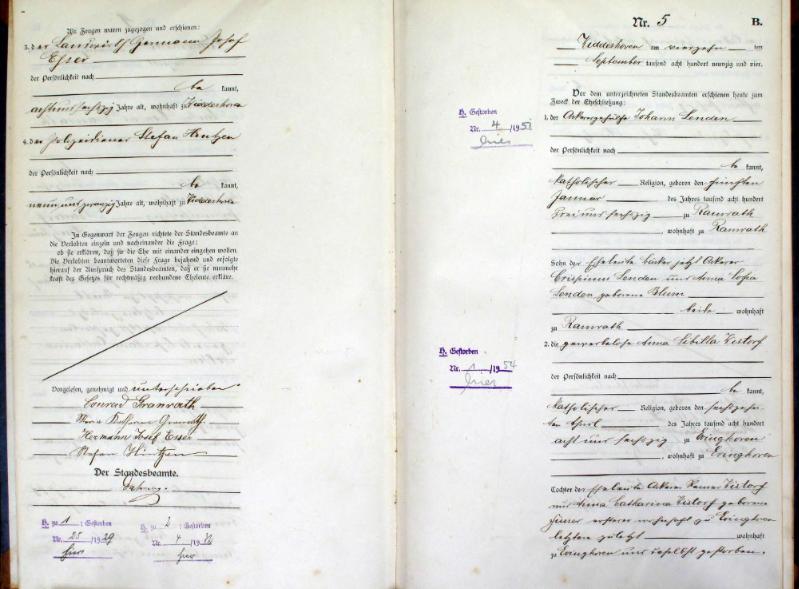 Als Zeugen waren zugezogen und erschienen:
3. der Landwirth Hermann Josef
Esser
der Persönlichkeit nach
be kannt,
achtundsechzig Jahre alt, wohnhaft zu Widdeshoven
4. der Polizeidiener Stefan
der Persönlichkeit nach
be kannt,
neunundzwanzig Jahre alt, wohnhaft zu Widdeshoven
In Gegenwart der Zeugen richtete der Standesbeamte an
die Verlobten einzeln und nacheinander die Frage:
ob sie erklären, daß sie die Ehe mit einander eingehen wollen.
Die Verlobten beantworteten diese Frage bejahend und erfolgte
hierauf der Ausspruch des Standesbeamten, daß er sie nunmehr
kraft des Gesetzes für rechtmäßig verbundene Eheleute erkläre.
Vorgelesen, genehmigt und unterschrieben
Conrad Granrath
Maria Granrath
Hermann Josef Esser
Stefan
Der Standesbeamte.
H. zu 1 : Gestorben
Nr. 25 /1929
hier
H. zu 2 : Gestorben
Nr. 4 /19
hier
Nr. 5
B.
Widdeshoven am vierzehn ten
September tausend acht hundert neunzig und vier.
Vor dem unterzeichneten Standesbeamten erschienen heute zum
Zweck der Eheschließung:
1. der Ackergehülfe Johann Lenden
der Persönlichkeit nach
be kannt,
katholischer Religion, geboren den fünften
Januar des Jahres tausend acht hundert
drei und sechszig zu Ramrath
, wohnhaft zu Ramrath
Sohn der Eheleute jetzt Ackerer
Crispinus Lenden und Anna Sofia
Lenden geborene Blum
beide wohnhaft
zu Ramrath
2. die gewerbelose Anna Sibilla Distorf
der Persönlichkeit nach
be kannt,
katholischer Religion, geboren den sechszehn
ten April des Jahres tausend acht hundert
acht und sechszig zu Evinghoven
, wohnhaft zu Evinghoven
Tochter der Eheleute Ackerer Distorf
und Anna Catharina Distorf geborene
ersterer wohnhaft zu Evinghoven
letztere zuletzt wohnhaft
zu Evinghoven und daselbst gestorben.
H. Gestorben
Nr. 4 /1951
hier
H. Gestorben
Nr. 1 /1954
hier